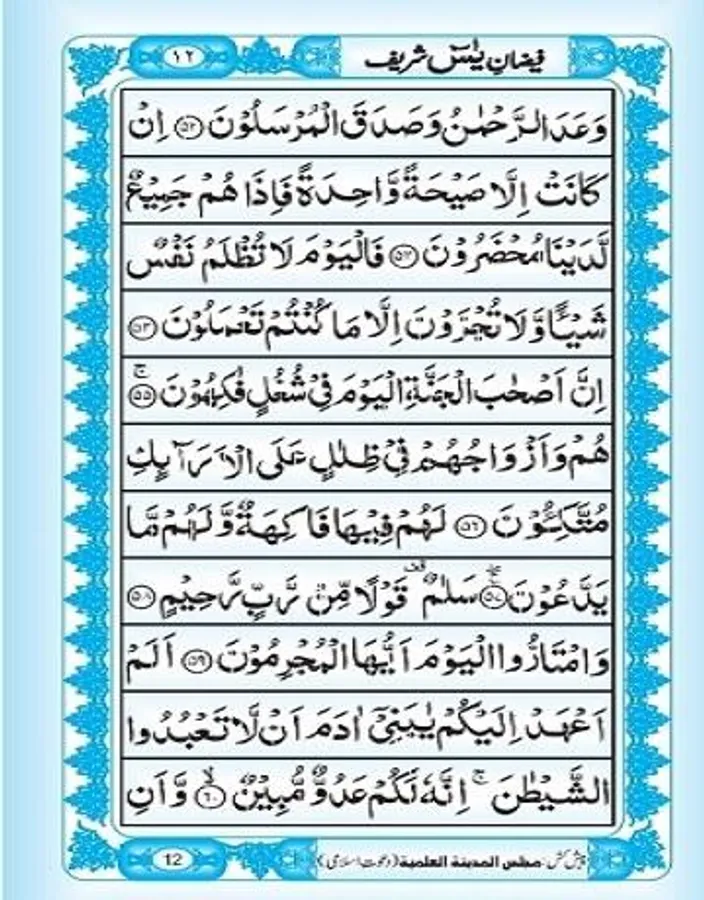 فیضانِ یٰسٓ شریف
١٢
وَعَدَ الرَّحْمٰنُ وَصَدَقَ الْمُرْسَلُوْنَ ﴿۵۲﴾ اِنْ
كَانَتْ اِلَّا صَیْحَةً وَّاحِدَةً فَاِذَا هُمْ جَمِیْعٌ
لَّدَیْنَا مُحْضَرُوْنَ ﴿۵۳﴾ فَالْیَوْمَ لَا تُظْلَمُ نَفْسٌ
شَیْـًٔا وَّلَا تُجْزَوْنَ اِلَّا مَا كُنْتُمْ تَعْمَلُوْنَ ﴿۵۴﴾
اِنَّ اَصْحٰبَ الْجَنَّةِ الْیَوْمَ فِیْ شُغُلٍ فٰكِهُوْنَ ﴿۵۵﴾ ۚ
هُمْ وَاَزْوَاجُهُمْ فِیْ ظِلٰلٍ عَلَی الْاَرَآىِٕكِ
مُتَّكِــُٔوْنَ ﴿۵۶﴾ لَهُمْ فِیْهَا فَاكِهَةٌ وَّلَهُمْ مَّا
یَدَّعُوْنَ ﴿۵۷﴾ سَلٰمٌ ۫ قَوْلًا مِّنْ رَّبٍّ رَّحِیْمٍ ﴿۵۸﴾
وَامْتَازُوا الْیَوْمَ اَیُّهَا الْمُجْرِمُوْنَ ﴿۵۹﴾ اَلَمْ
اَعْهَدْ اِلَیْكُمْ یٰبَنِیْۤ اٰدَمَ اَنْ لَّا تَعْبُدُوا
الشَّیْطٰنَ ۚ اِنَّهٗ لَكُمْ عَدُوٌّ مُّبِیْنٌ ﴿۶۰﴾ ۙ وَّاَنِ
پیش کش: مجلس المدینۃ العلمیۃ (دعوتِ اسلامی)
12